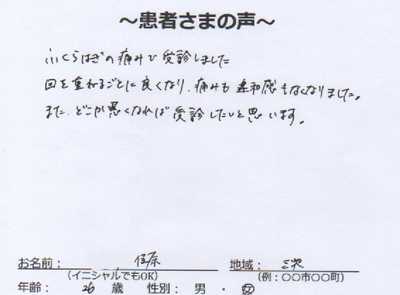 ～患者さまの声～
ふくらはぎの痛みで受診しました
回を重ねるごとに良くなり、痛みも違和感もなくなりました。
また、どこか悪くなれば受診したいと思います。
お名前： 佳原 地域： 三次
(イニシャルでもOK) (例：〇〇市〇〇町)
年齢： 26 歳 性別： 男 ・ 女